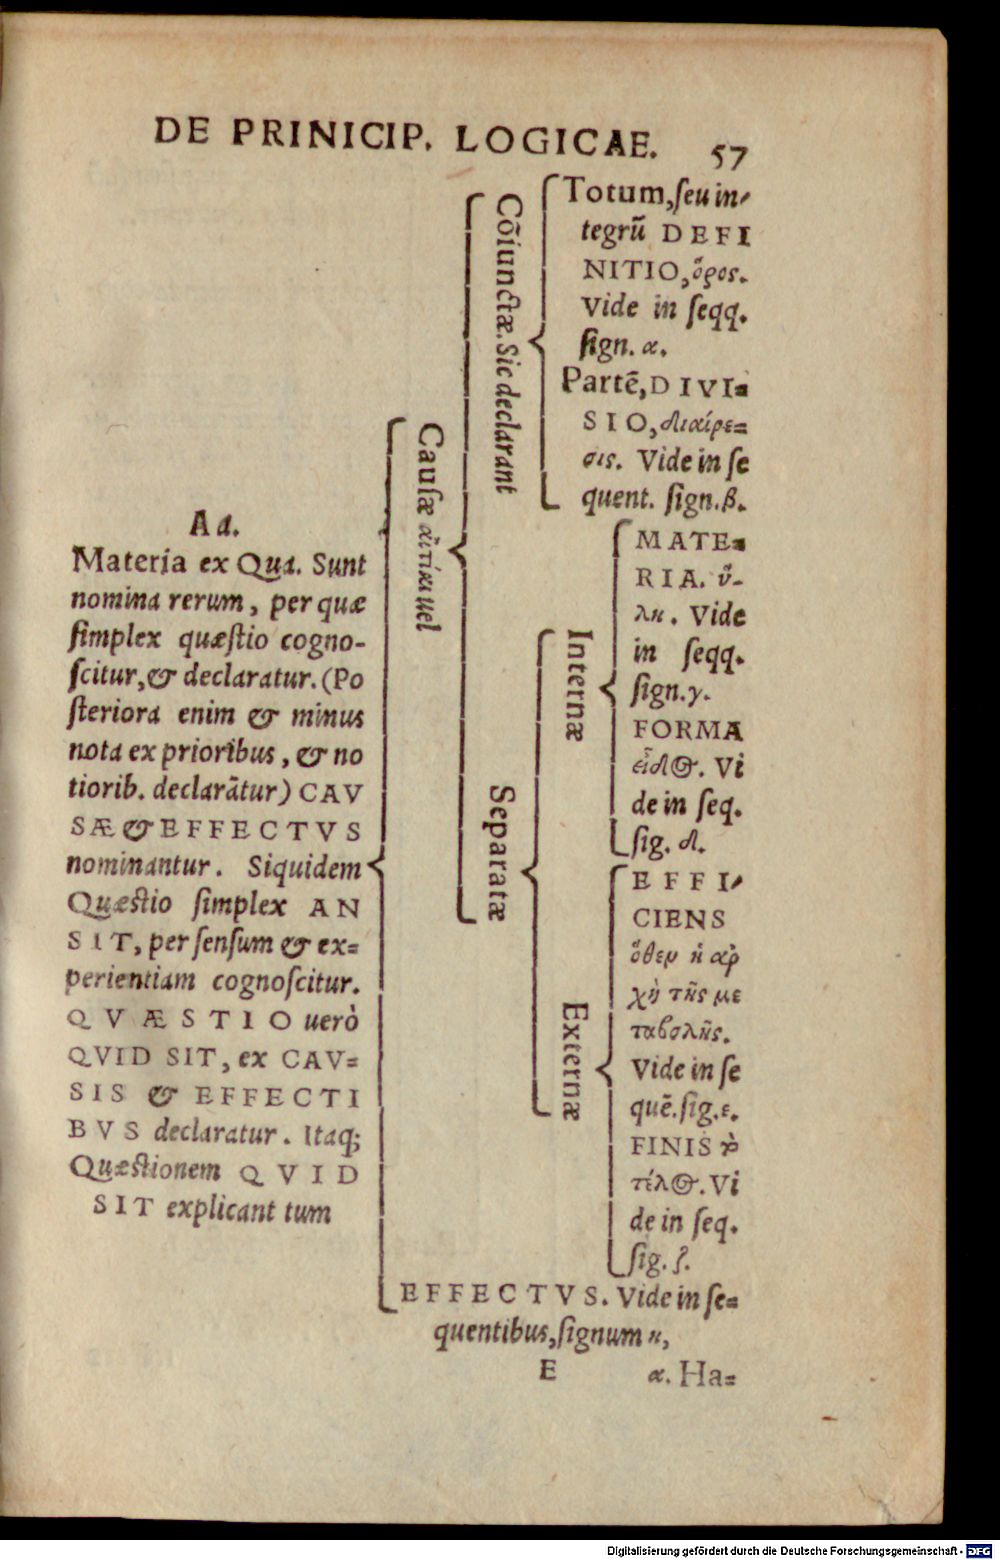 DE PRINICIP. LOGICAE. 57
Ad.
Materia ex Qua. Sunt
nomina rerum, per quæ
ſimplex quæſtio cogno-
ſcitur, & declaratur. (Po
ſteriora enim & minus
nota ex prioribus, & no
tiorib. declarãtur) CAV
SÆ & EFFECTVS
nominantur. Siquidem
Quæſtio ſimplex AN
SIT, per ſenſum & ex=
perientiam cognoſcitur.
QVÆSTIO uerò
QVID SIT, ex CAV=
SIS & EFFECTI
BVS declaratur. Itaq;
Quæſtionem QVID
SIT explicant tum
Cauſæ αἰτίαι uel
Cõiunctæ. Sic declarant
Totum, ſeu in-
tegrũ DEFI
NITIO, ὅρος.
Vide in ſeqq.
ſign. α.
Partẽ, DIVI=
SIO, διαίρε=
σις. Vide in ſe
quent. ſign. β.
Separatæ
Internæ
MATE=
RIA. ὕ-
λη. Vide
in ſeqq.
ſign. γ.
FORMA
εἶδος. Vi
de in ſeq.
ſig. δ.
Externæ
EFFI-
CIENS
ὅθεν ἡ ἀρ
χὴ τῆς με
ταβολῆς.
Vide in ſe
quẽ. ſig. ε.
FINIS τὸ
τέλος. Vi
de in ſeq.
ſig. ζ.
EFFECTVS. Vide in ſe=
quentibus, ſignum η,
E α. Ha=
Digitalisierung gefördert durch die Deutsche Forschungsgemeinschaft - DFG